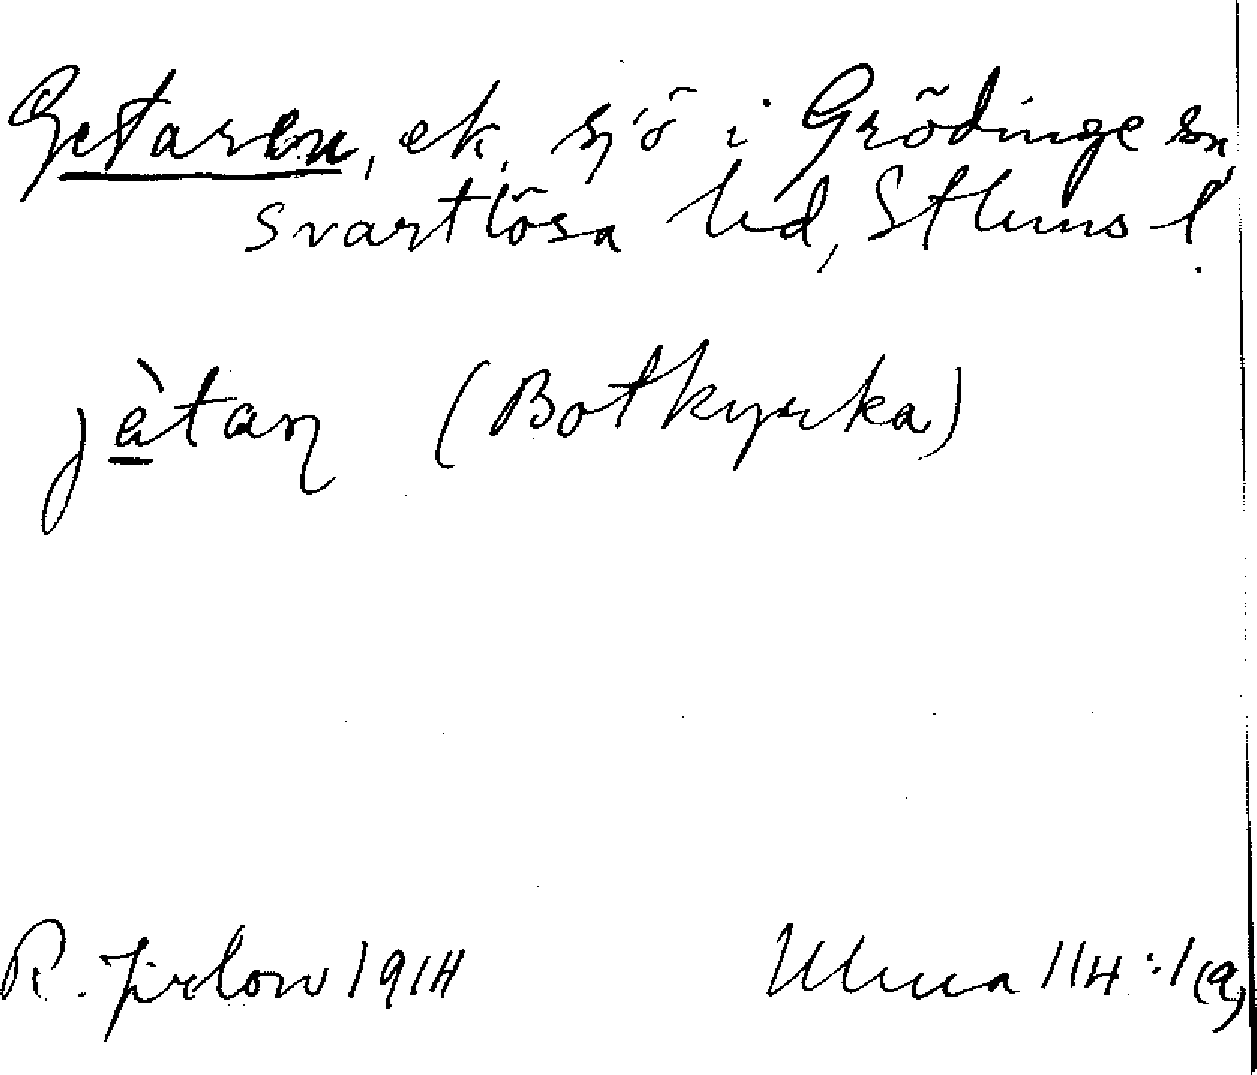 Getaren, ek, sjö i Grödinge sn,
Svartlösa hd, Sthlms l.
jètaṇ (Botkyrka)
R. Jirlow 1914 Ulma 114:1(9)